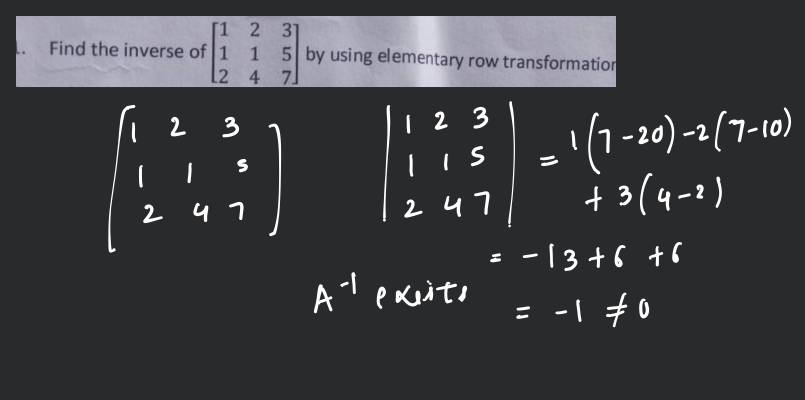 1. Find the inverse of [1 2 3
1 1 5
2 4 7] by using elementary row transformation
[1 2 3
1 1 5
2 4 7]
|1 2 3
1 1 5
2 4 7| = 1(7-20) -2(7-10)
+ 3(4-2)
= -13 + 6 + 6
A⁻¹ exists
= -1 ≠ 0